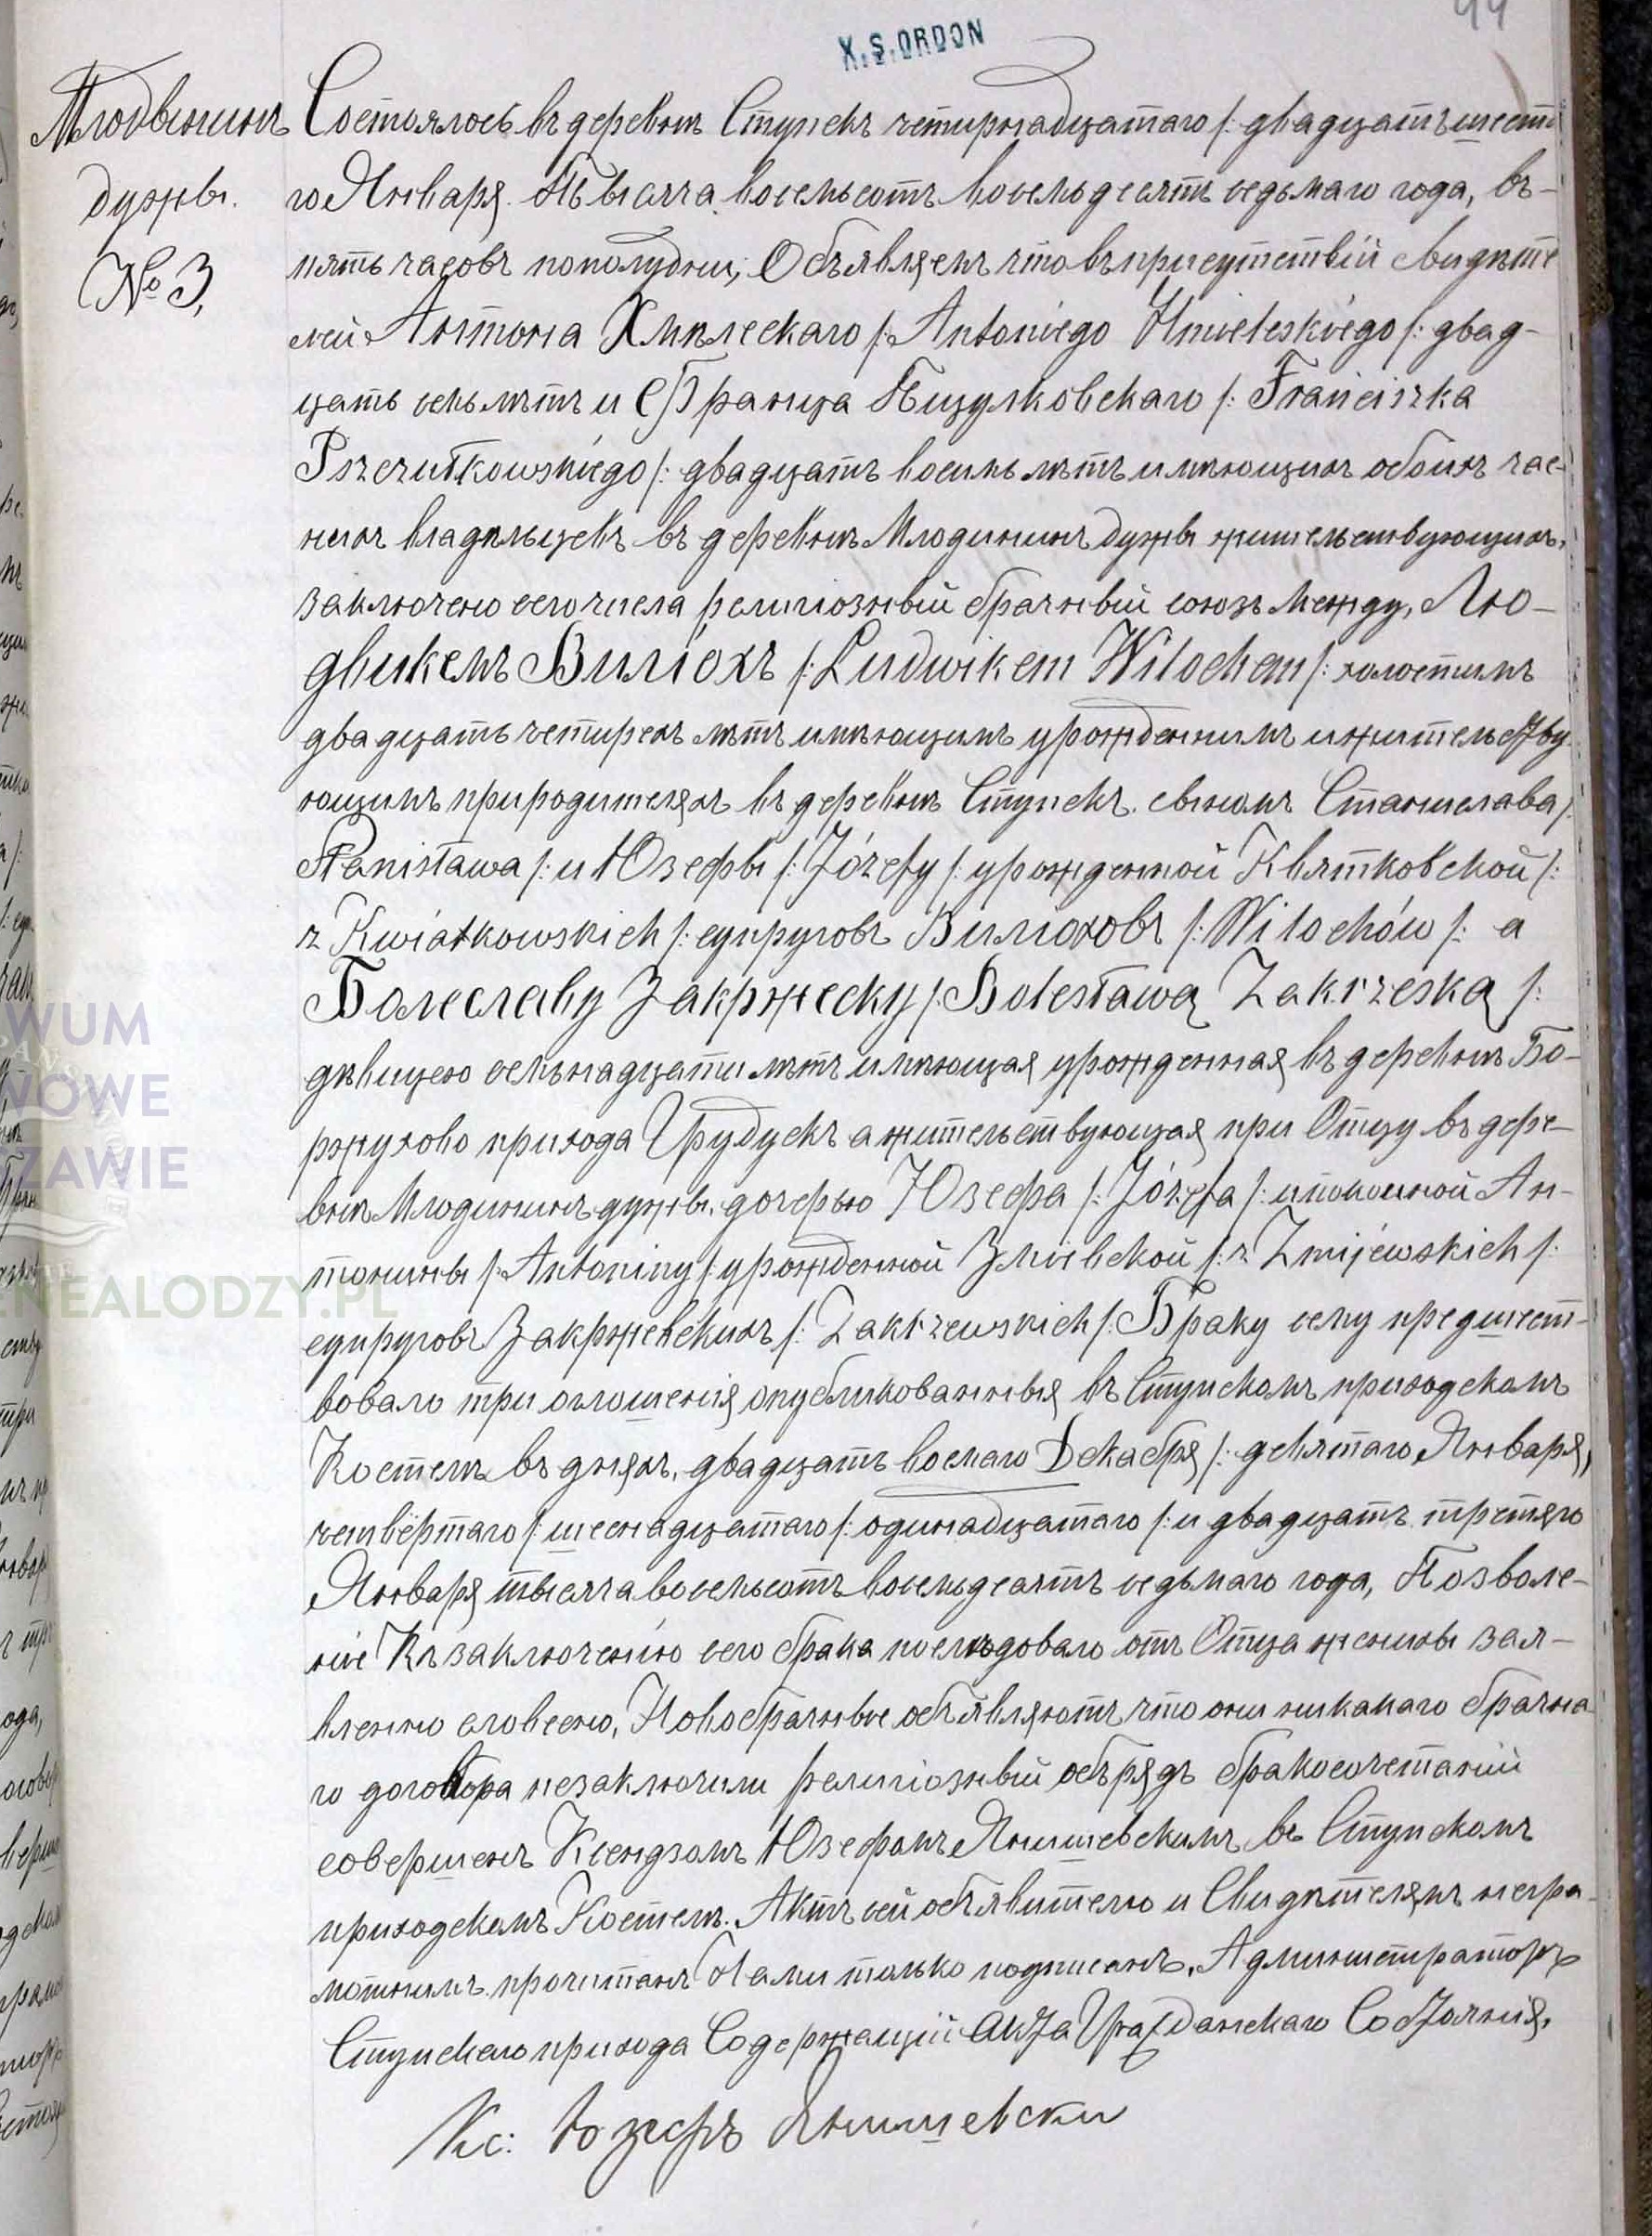 44
X.S.ORDON
Млодвининъ
дужы.
№ 3,
Состоялось въ деревнѣ Ступскъ четирнадцатаго /: двадцатьшеста
го Января Тысяча восемьсотъ восемьдесятъ седьмаго года, въ-
пять часовъ пополудни; Объявляемъ что въ присутствіи свидѣте
лей Антона Хмѣлескаго /: Antoniego Hmieleskiego /: двад-
цать семь лѣтъ и Франца Пщулковскаго /: Franciszka
Pszczułkowskiego /: двадцать восемь лѣтъ имѣющихъ обоихъ час-
ныхъ владѣльцевъ въ деревнѣ Млодининъ дужы жительствующихъ,
заключено сего числа религіозный брачный союзъ между, Лю-
двикемъ Виліохъ /: Ludwikem Wilochem /: холостимъ
двадцать четирехъ лѣтъ имѣющимъ урожденнимъ и жительству
ющимъ при родителяхъ въ деревнѣ Ступскъ, сыномъ Станислава /:
Stanisława /: и Юзефы /: Józefy /: урожденной Квятковской /:
z Kwiatkowskich /: супруговъ Вилиоховъ /: Wilochów /: а
Болеславу Закржеску /: Bolesławą Zakrzeską /:
дѣвицею семьнадцати лѣтъ имѣющая урожденная въ деревнѣ Бо-
ржухово прихода Грудускъ а жительствующая при Отцу въ дере-
внѣ Млодининъ дужы, дочерью Юзефа /: Józefa /: и покойной Ан-
тонины /: Antoniny /: урожденной Змiевской /: z Zmijewskich /:
супруговъ Закржевскихъ /: Zakrzewskich /: Браку сему предшест-
вовало три оглошенія опубликованныя въ Ступскомъ приходскомъ
Костелѣ въ дняхъ, двадцать восмаго Декабря /: девятаго Января,
четвёртаго /: шеснадцатаго /: одинадцатаго /: и двадцать третяго
Января тысяча восемьсотъ восемьдесятъ седьмаго года, Позволе-
ніе Къ заключенію сего брака послѣдовало отъ Отца жениы зая-
вленно словесно, Новобрачные объявляютъ что они никакаго брачна
го договора незаключили религіозный обърядъ бракосочетаній
совершенъ Ксендзомъ Юзефомъ Янишевскимъ въ Ступскомъ
приходскомъ Костелѣ. Актъ сей объявителю и Свидѣтелямъ негра-
мотнимъ прочитанъ Нами только подписанъ. Администраторъ
Ступскаго прихода Содержащій Акта Гражданскаго Состоянія.
Кс: Юзефъ Янишевски
WUM
WOWE
ZAWIE
ENEALODZY.PL